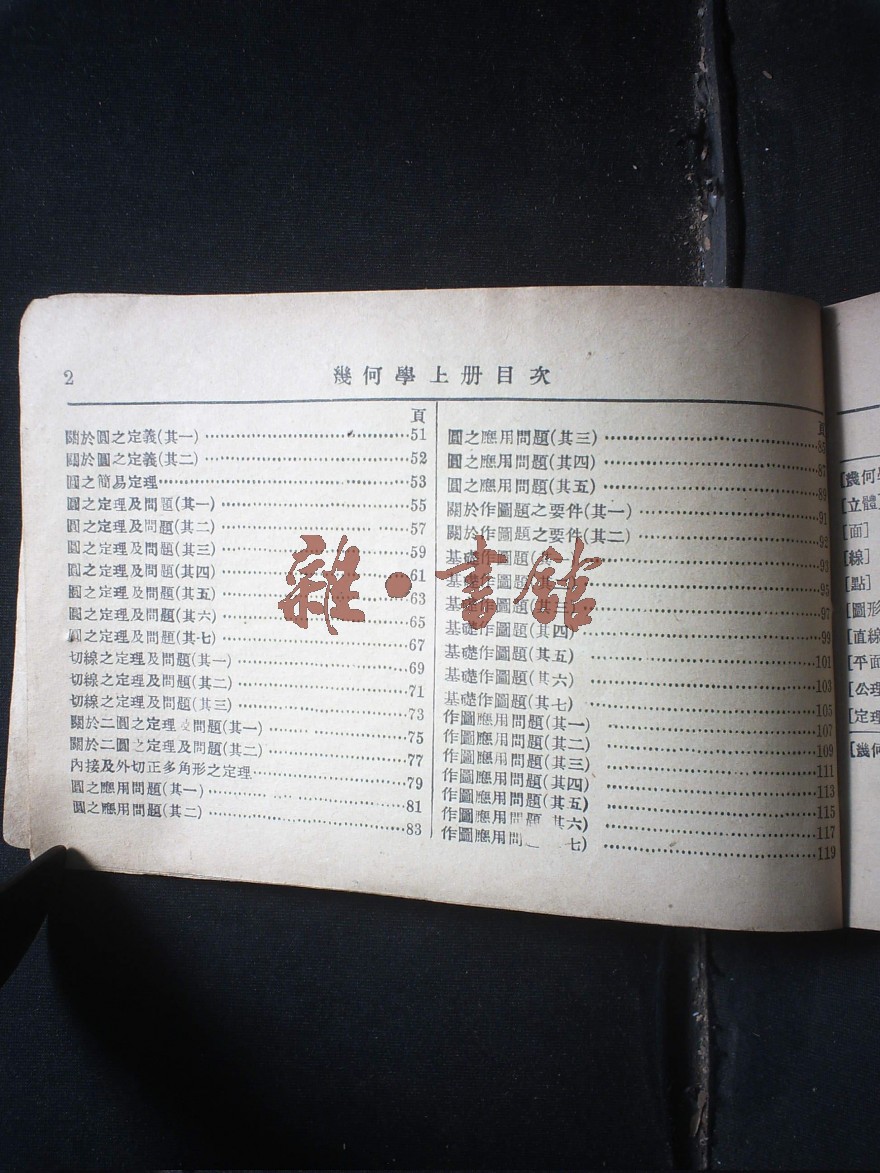 2
幾何學上册目次
頁
關於圓之定義(其一)……51
關於圓之定義(其二)……52
圓之簡易定理……53
圓之定理及問題(其一)……55
圓之定理及問題(其二)……57
圓之定理及問題(其三)……59
圓之定理及問題(其四)……61
圓之定理及問題(其五)……63
圓之定理及問題(其六)……65
圓之定理及問題(其七)……67
切線之定理及問題(其一)……69
切線之定理及問題(其二)……71
切線之定理及問題(其三)……73
關於二圓之定理及問題(其一)……75
關於二圓之定理及問題(其二)……77
內接及外切正多角形之定理……79
圓之應用問題(其一)……81
圓之應用問題(其二)……83
頁
圓之應用問題(其三)……85
圓之應用問題(其四)……87
圓之應用問題(其五)……89
關於作圖題之要件(其一)……91
關於作圖題之要件(其二)……92
基礎作圖題(其一)……93
基礎作圖題(其二)……95
基礎作圖題(其三)……97
基礎作圖題(其四)……99
基礎作圖題(其五)……101
基礎作圖題(其六)……103
基礎作圖題(其七)……105
作圖應用問題(其一)……107
作圖應用問題(其二)……109
作圖應用問題(其三)……111
作圖應用問題(其四)……113
作圖應用問題(其五)……115
作圖應用問題(其六)……117
作圖應用問 七)……119
雜·書館
[幾何學
[立體]
[面]
[線]
[點]
[圖形
[直線
[平面
[公理
[定理
[幾何